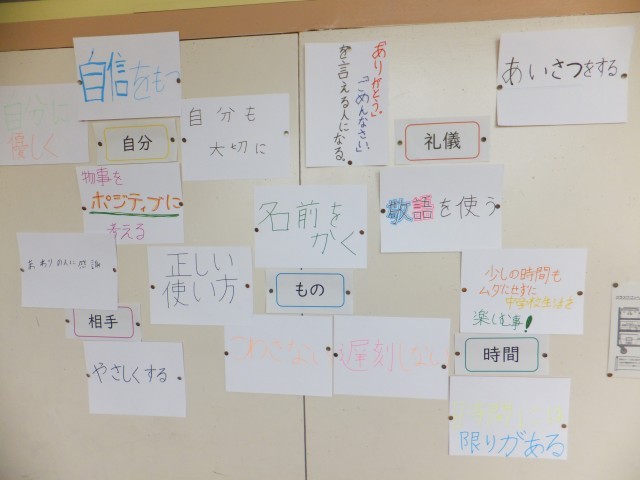 自信をもつ
自分に
優しく
自分
自分も
大切に
物事を
ポジティブに
考える
「ありがとう」「ごめんなさい」
を言える人になる。
礼儀
あいさつをする
敬語を使う
名前を
かく
正しい
使い方
もの
こわさない
まわりの人に感謝
相手
やさしくする
少しの時間も
ムダにせずに
中学校生活を
楽しむ事!
遅刻しない
時間
時間には
限りがある